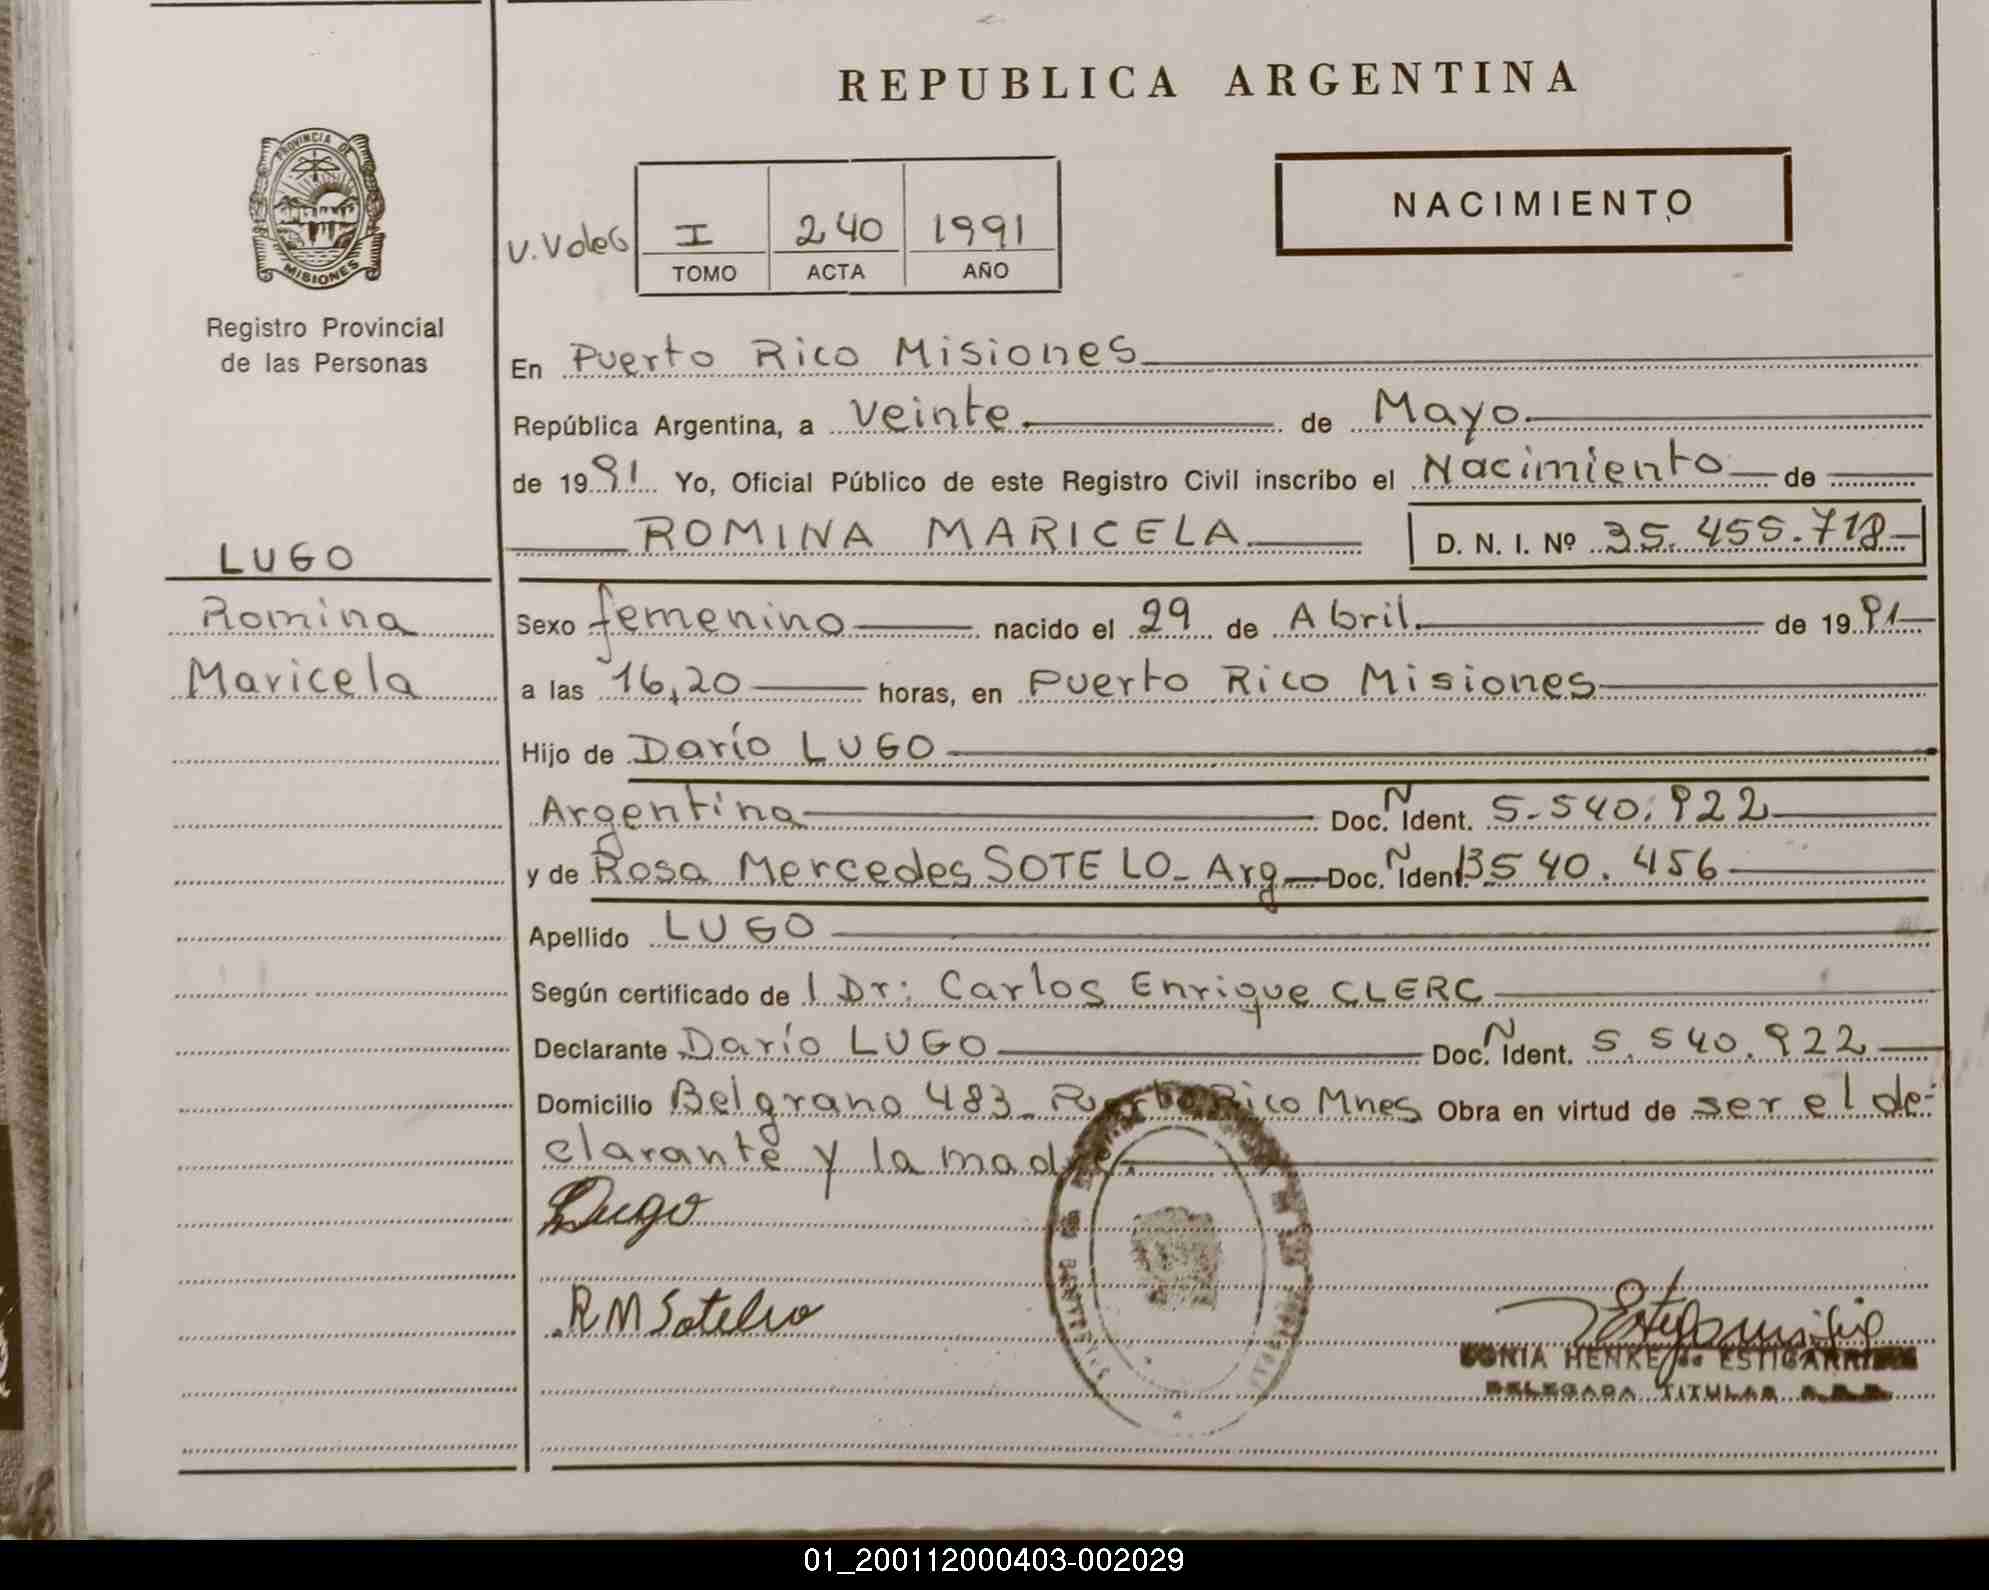 REPUBLICA ARGENTINA
PROVINCIA DE
MISIONES
Registro Provincial
de las Personas
V. Voleb
I 240 1991
TOMO ACTA AÑO
NACIMIENTO
En Puerto Rico Misiones
República Argentina, a veinte de Mayo
de 1991 Yo, Oficial Público de este Registro Civil inscribo el Nacimiento de
ROMINA MARICELA D. N. I. Nº 35.455.718
LUGO
Romina
Maricela
Sexo femenino nacido el 29 de Abril de 1991
a las 16,20 horas, en Puerto Rico Misiones
Hijo de Darío LUGO
Argentina Doc. Ñ Ident. 5.540.922
y de Rosa Mercedes SOTELO_ Arg Doc. Ñ Ident. 13540.456
Apellido LUGO
Según certificado de l Dr: Carlos Enrique CLERC
Declarante Darío LUGO Doc. Ñ Ident. 5.540.922
Domicilio Belgrano 483_ Puerto Rico Mnes Obra en virtud de ser el de-
clarante y la madre.
Lugo
RMSotelo
SONIA HENKE de ESTIGARRIBIA
DELEGADA TITULAR
01_200112000403-002029